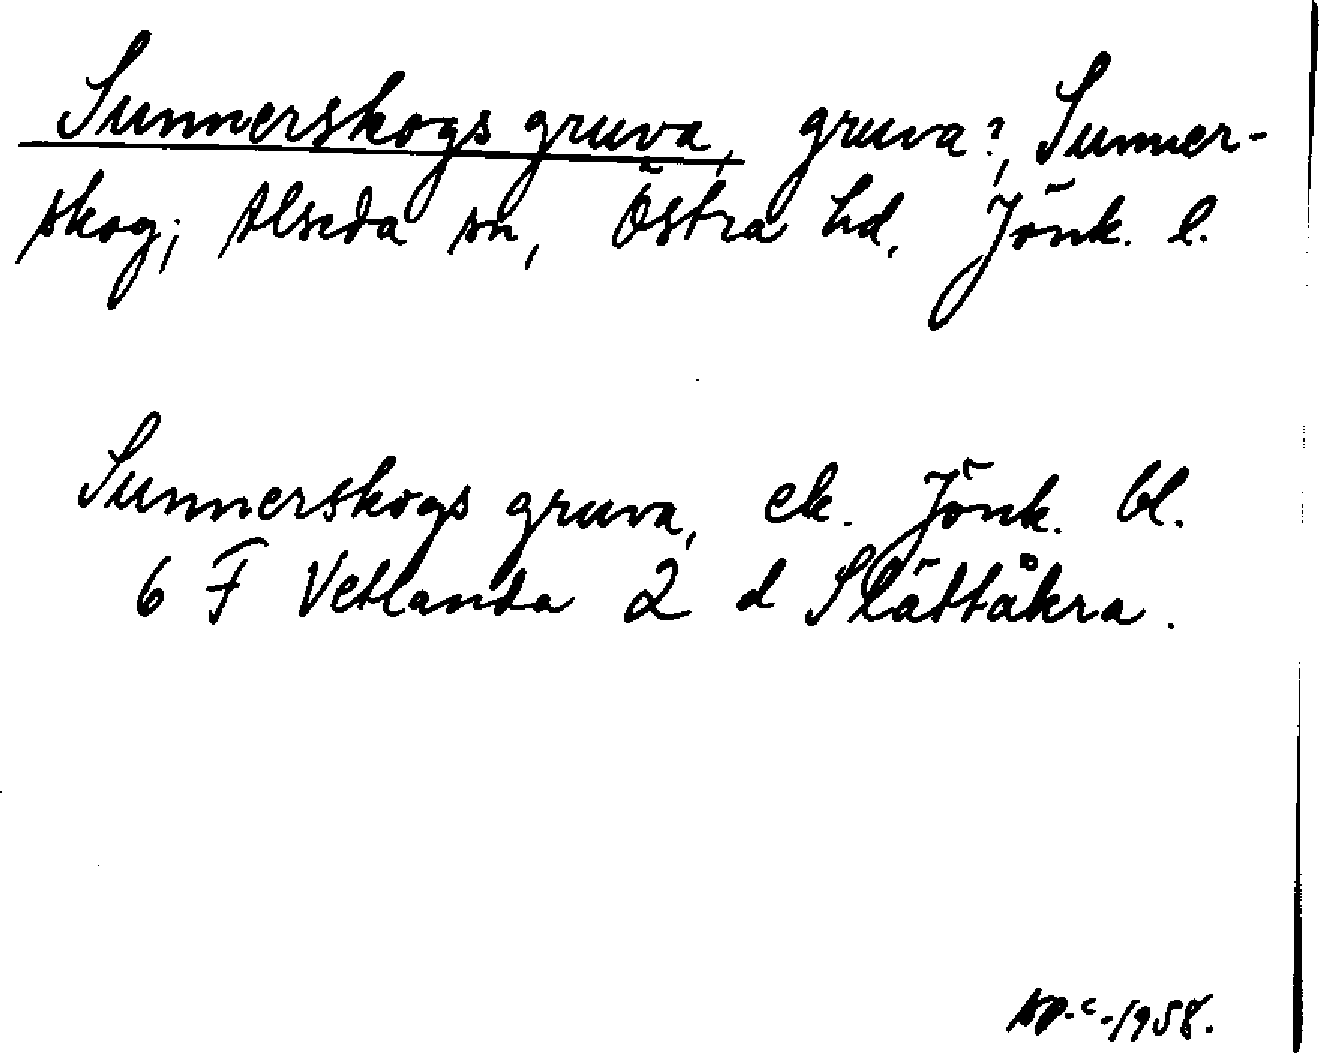 Sunnerskogs gruva, gruva?, Sunner-
skog; Alseda sn, Östra hd, Jönk. l.
Sunnerskogs gruva, ek. Jönk. bl.
6 F Vetlanda 2 d Slättåkra.
1958.